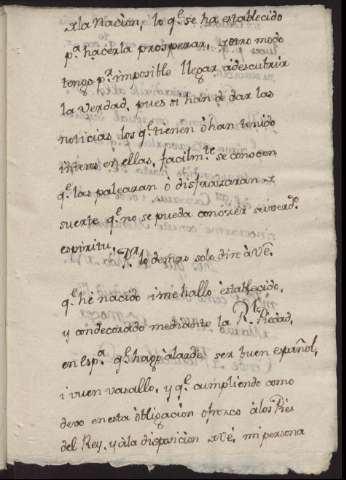 xla Nacion, lo q.e se ha establecido
p.a hacerla prosperar, y otro modo
tengo p.r imposible llegar a descubrir
la Verdad, pues si han de dar las
noticias los q.e tienen ó han tenido
interes en ellas, facilm.te se conocen
q.e las palearan ó disfrazaran x
suerte q.e no se pueda conocer su verd.o
espiritu. P.r lo demas solo diré a VE.
q.e hé nacido i me hallo establecido,
y condecorado mediante la R.l Piedad,
en Esp.a q.e hago alarde ser buen español,
i buen vasallo, y q.e cumpliendo como
devo en esta obligacion ofresco a los Pies
del Rey, y à la disposicion x VE. mi persona